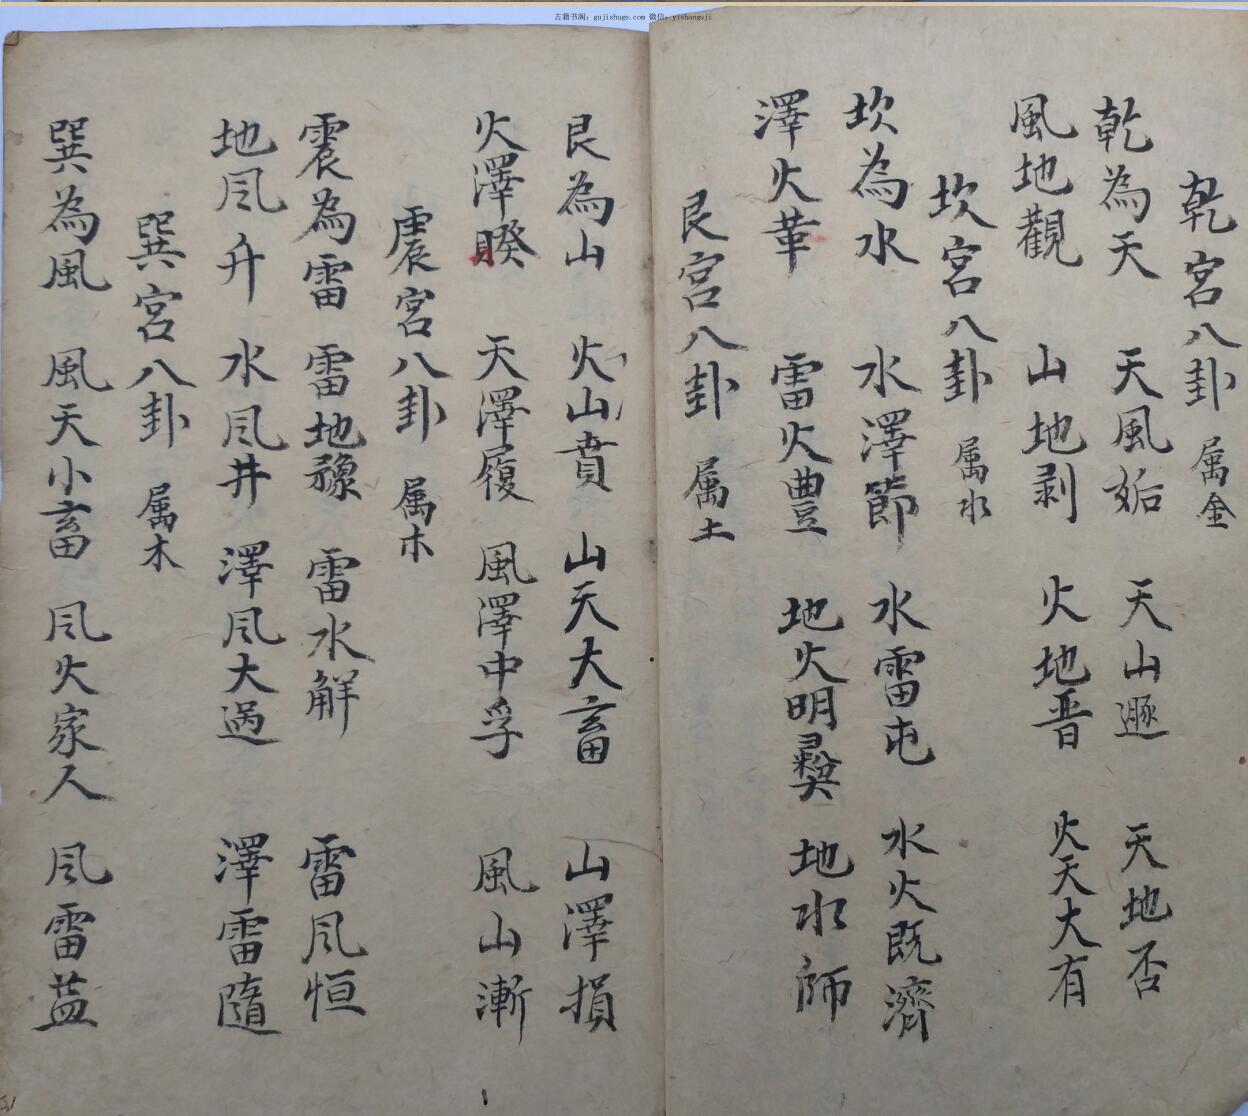 古籍书阁：gujishuge.com 微信：yishanguji
乾宮八卦 属金
乾為天 天風姤 天山遯 天地否
風地觀 山地剥 火地晋 火天大有
坎宮八卦 属水
坎為水 水澤節 水雷屯 水火既濟
澤火革 雷火豊 地火明彝 地水師
艮宮八卦 属土
艮為山 火山賁 山天大畜 山澤損
火澤睽 天澤履 風澤中孚 風山漸
震宮八卦 属木
震為雷 雷地豫 雷水解 雷风恒
地风升 水风井 澤风大過 澤雷隨
巽宮八卦 属木
巽為風 風天小畜 风火家人 风雷益